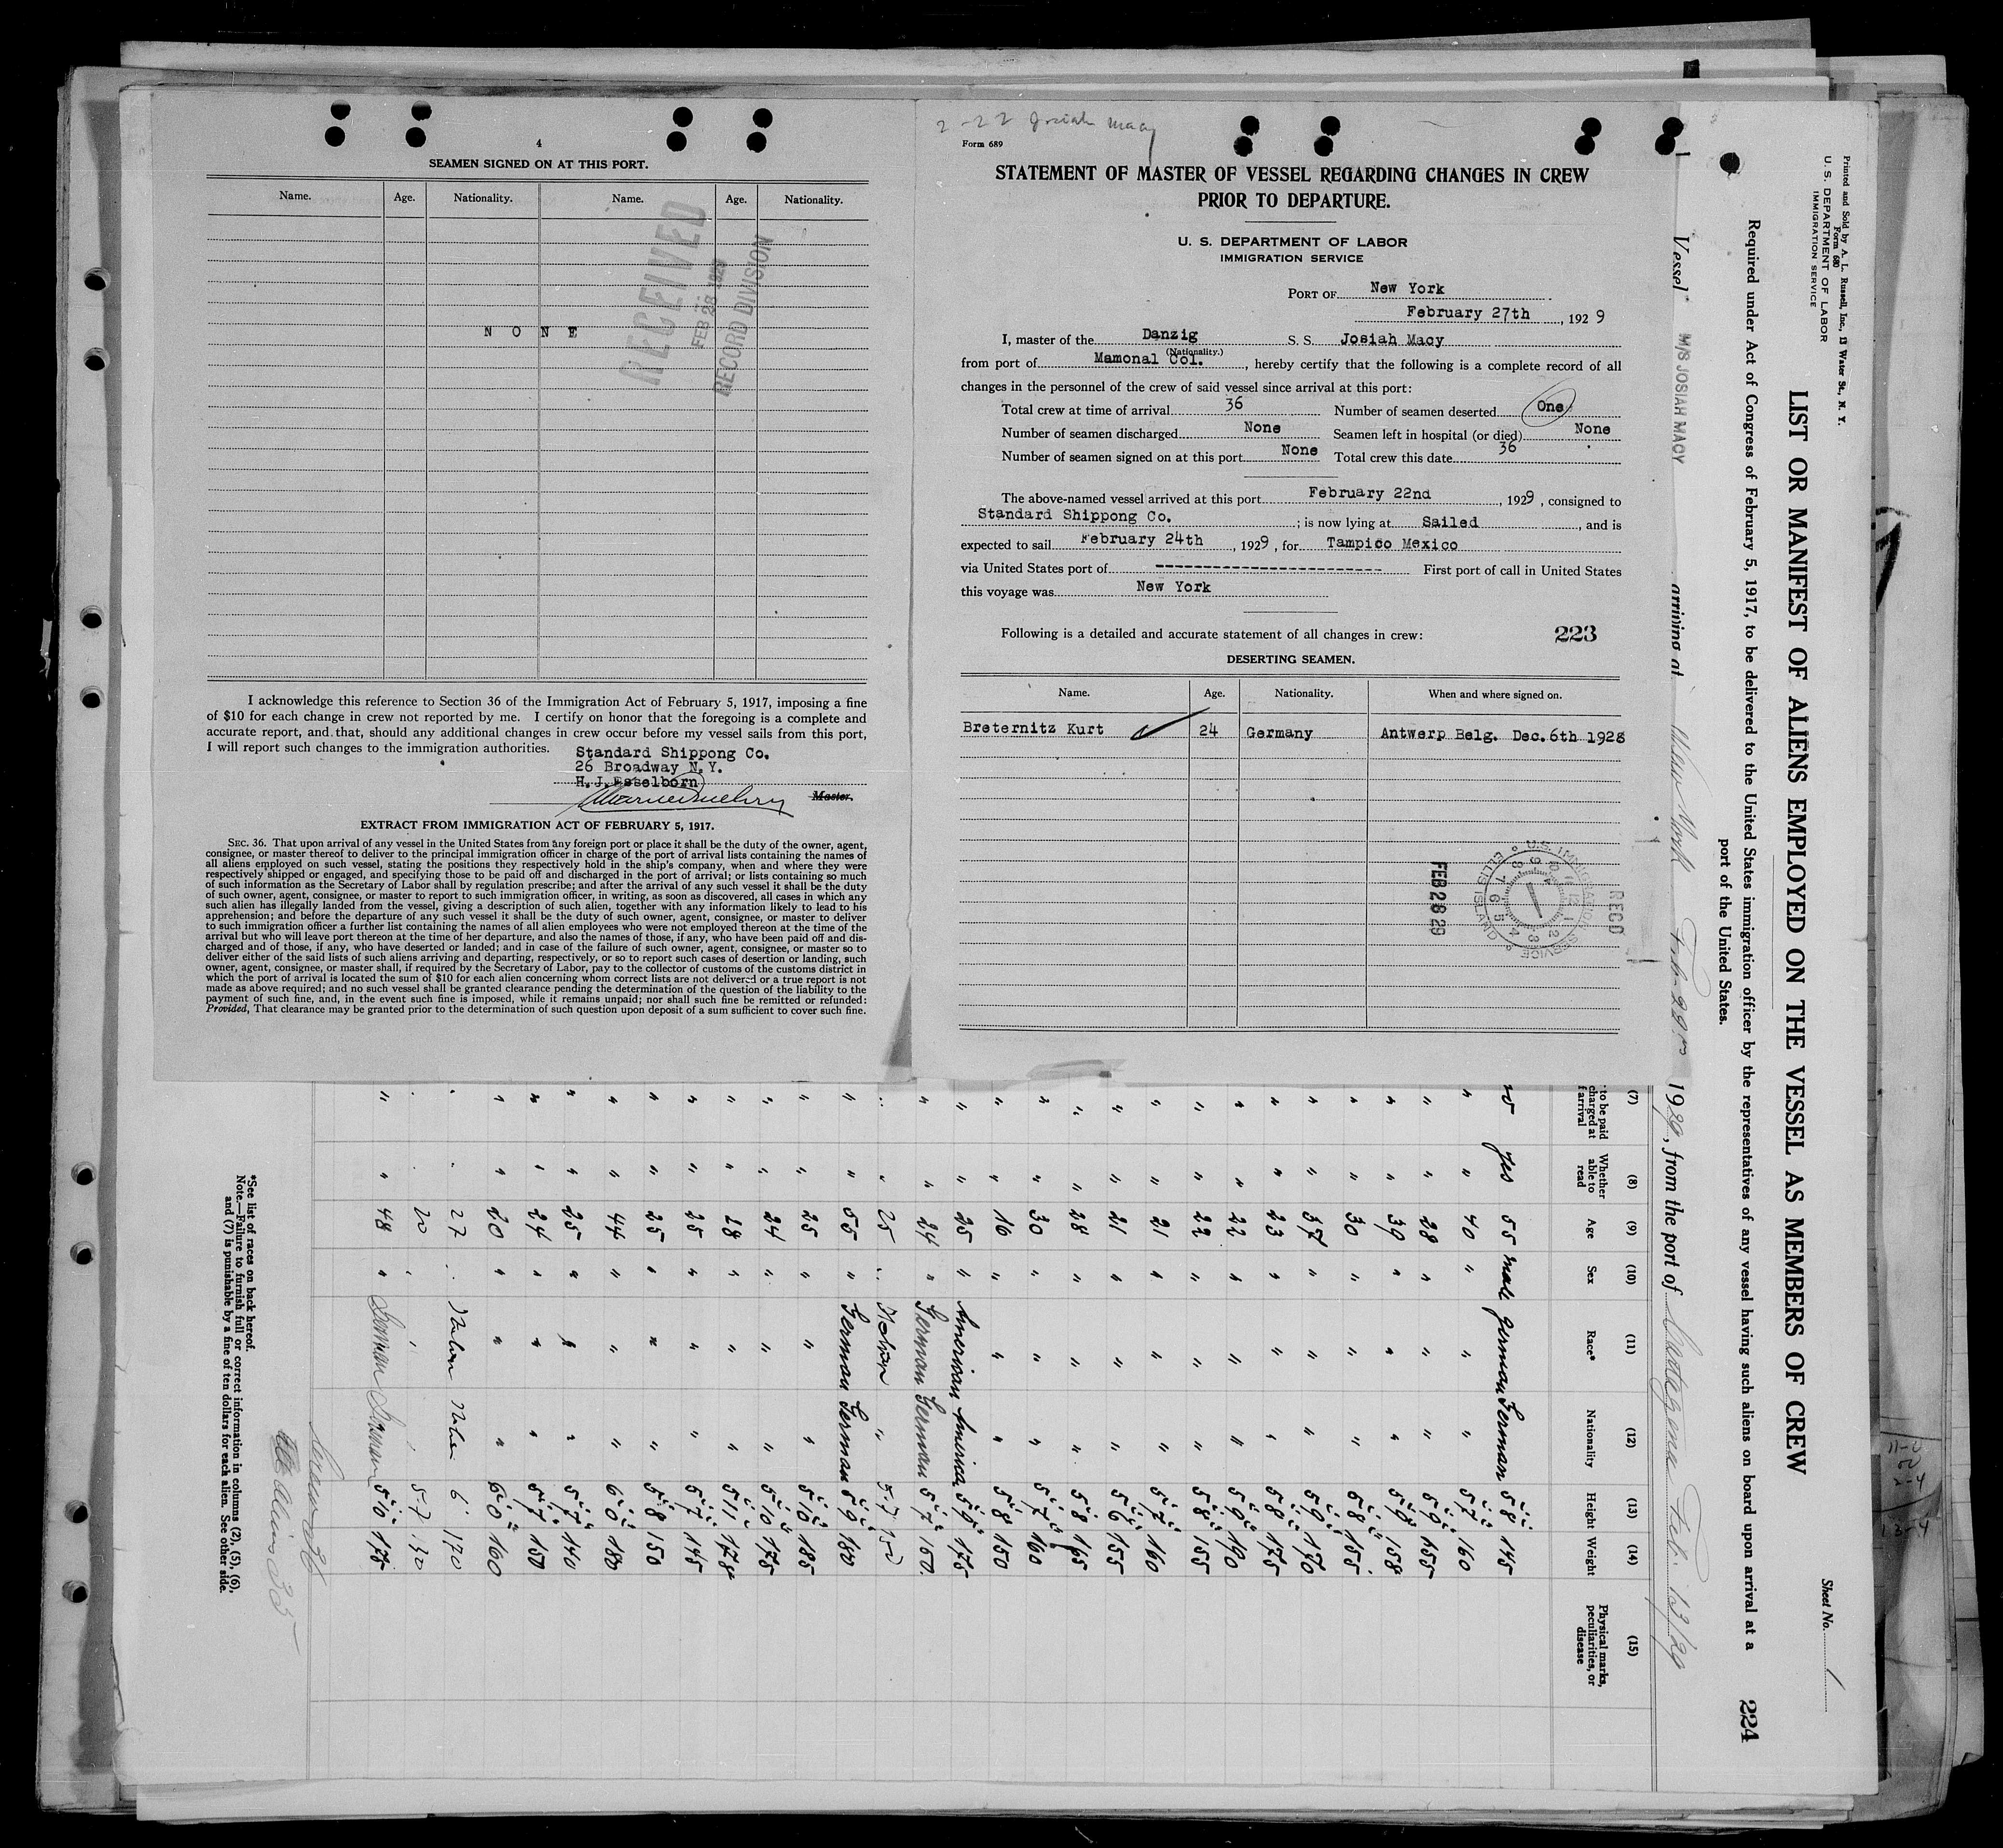 4
SEAMEN SIGNED ON AT THIS PORT.
Name. Age. Nationality. Name. Age. Nationality.
N O N E
RECEIVED
FEB 28 1929
RECORD DIVISION
I acknowledge this reference to Section 36 of the Immigration Act of February 5, 1917, imposing a fine
of $10 for each change in crew not reported by me. I certify on honor that the foregoing is a complete and
accurate report, and that, should any additional changes in crew occur before my vessel sails from this port,
I will report such changes to the immigration authorities.
Standard Shippong Co.
26 Broadway N.Y.
H.J.Esselborn
Master.
EXTRACT FROM IMMIGRATION ACT OF FEBRUARY 5, 1917.
SEC. 36. That upon arrival of any vessel in the United States from any foreign port or place it shall be the duty of the owner, agent,
consignee, or master thereof to deliver to the principal immigration officer in charge of the port of arrival lists containing the names of
all aliens employed on such vessel, stating the positions they respectively hold in the ship's company, when and where they were
respectively shipped or engaged, and specifying those to be paid off and discharged in the port of arrival; or lists containing so much
of such information as the Secretary of Labor shall by regulation prescribe; and after the arrival of any such vessel it shall be the duty
of such owner, agent, consignee, or master to report to such immigration officer, in writing, as soon as discovered, all cases in which any
such alien has illegally landed from the vessel, giving a description of such alien, together with any information likely to lead to his
apprehension; and before the departure of any such vessel it shall be the duty of such owner, agent, consignee, or master to deliver
to such immigration officer a further list containing the names of all alien employees who were not employed thereon at the time of the
arrival but who will leave port thereon at the time of her departure, and also the names of those, if any, who have been paid off and dis-
charged and of those, if any, who have deserted or landed; and in case of the failure of such owner, agent, consignee, or master so to
deliver either of the said lists of such aliens arriving and departing, respectively, or so to report such cases of desertion or landing, such
owner, agent, consignee, or master shall, if required by the Secretary of Labor, pay to the collector of customs of the customs district in
which the port of arrival is located the sum of $10 for each alien concerning whom correct lists are not delivered or a true report is not
made as above required; and no such vessel shall be granted clearance pending the determination of the question of the liability to the
payment of such fine, and, in the event such fine is imposed, while it remains unpaid; nor shall such fine be remitted or refunded:
Provided, That clearance may be granted prior to the determination of such question upon deposit of a sum sufficient to cover such fine.
2-22 Josiah Macy
Form 689
STATEMENT OF MASTER OF VESSEL REGARDING CHANGES IN CREW
PRIOR TO DEPARTURE.
U. S. DEPARTMENT OF LABOR
IMMIGRATION SERVICE
PORT OF New York
February 27th, 1929
I, master of the Danzig S. S. Josiah Macy
(Nationality.)
from port of Mamonal Col., hereby certify that the following is a complete record of all
changes in the personnel of the crew of said vessel since arrival at this port:
Total crew at time of arrival 36 Number of seamen deserted One
Number of seamen discharged None Seamen left in hospital (or died) None
Number of seamen signed on at this port None Total crew this date 36
The above-named vessel arrived at this port February 22nd, 1929, consigned to
Standard Shippong Co. ; is now lying at Sailed, and is
expected to sail February 24th, 1929, for Tampico Mexico
via United States port of ------------------------ First port of call in United States
this voyage was New York
Following is a detailed and accurate statement of all changes in crew: 223
DESERTING SEAMEN.
Name. Age. Nationality. When and where signed on.
Breternitz Kurt 24 Germany Antwerp Belg. Dec.6th 1928
REC'D
U.S. IMMIGRATION SERVICE
ELLIS ISLAND
FEB 28 29
Printed and Sold by A. L. Russell, Inc., 13 Water St., N. Y.
Form 680
U. S. DEPARTMENT OF LABOR
IMMIGRATION SERVICE
Sheet No. 1
LIST OR MANIFEST OF ALIENS EMPLOYED ON THE VESSEL AS MEMBERS OF CREW
Required under Act of Congress of February 5, 1917, to be delivered to the United States immigration officer by the representatives of any vessel having such aliens on board upon arrival at a
port of the United States.
224
Vessel M/S JOSIAH MACY arriving at New York Feb 22, 1929, from the port of Cartagena Feb. 13/29
(7) (8) (9) (10) (11) (12) (13) (14) (15)
to be paid
charged at
arrival
Whether
able to
read
Age Sex Race* Nationality Height Weight
Physical marks,
peculiarities, or
disease
no yes 55 male German German 5' 8" 145
" " 40 " " " 5' 7" 160
" " 28 " " " 5' 9" 155
" " 39 " " " 5' 9" 158
" " 30 " " " 5' 8" 155
" " 37 " " " 5' 9" 170
" " 23 " " " 5' 8" 175
" " 22 " " " 5' 9" 190
" " 22 " " " 5' 8" 155
" " 21 " " " 5' 7" 160
" " 21 " " " 5' 6" 155
" " 28 " " " 5' 8" 165
" " 30 " " " 5' 7" 160
" " 16 " " " 5' 8" 150
" " 25 " American America 5' 9" 175
" " 24 " German German 5' 7" 150
" " 25 " " 5-7 150
" " 55 " German German 5' 9" 180
" " 25 " " " 5' 10" 185
" " 24 " " " 5' 10" 175
" " 28 " " " 5' 11" 178
" " 25 " " " 5' 7" 145
" " 25 " " " 5' 8" 150
" " 44 " " " 6' 0" 180
" " 25 " " " 5' 7" 140
" " 24 " " " 5' 7" 150
" " 20 " " " 6' 0" 160
" " 27 " Italian Italian 6' 170
20 5-7 130
" " 48 " German German 5' 6" 175
*See list of races on back hereof.
Note.—Failure to furnish full or correct information in columns (2), (5), (6),
and (7) is punishable by a fine of ten dollars for each alien. See other side.
Aliens 35
11-2
2-4
13-4